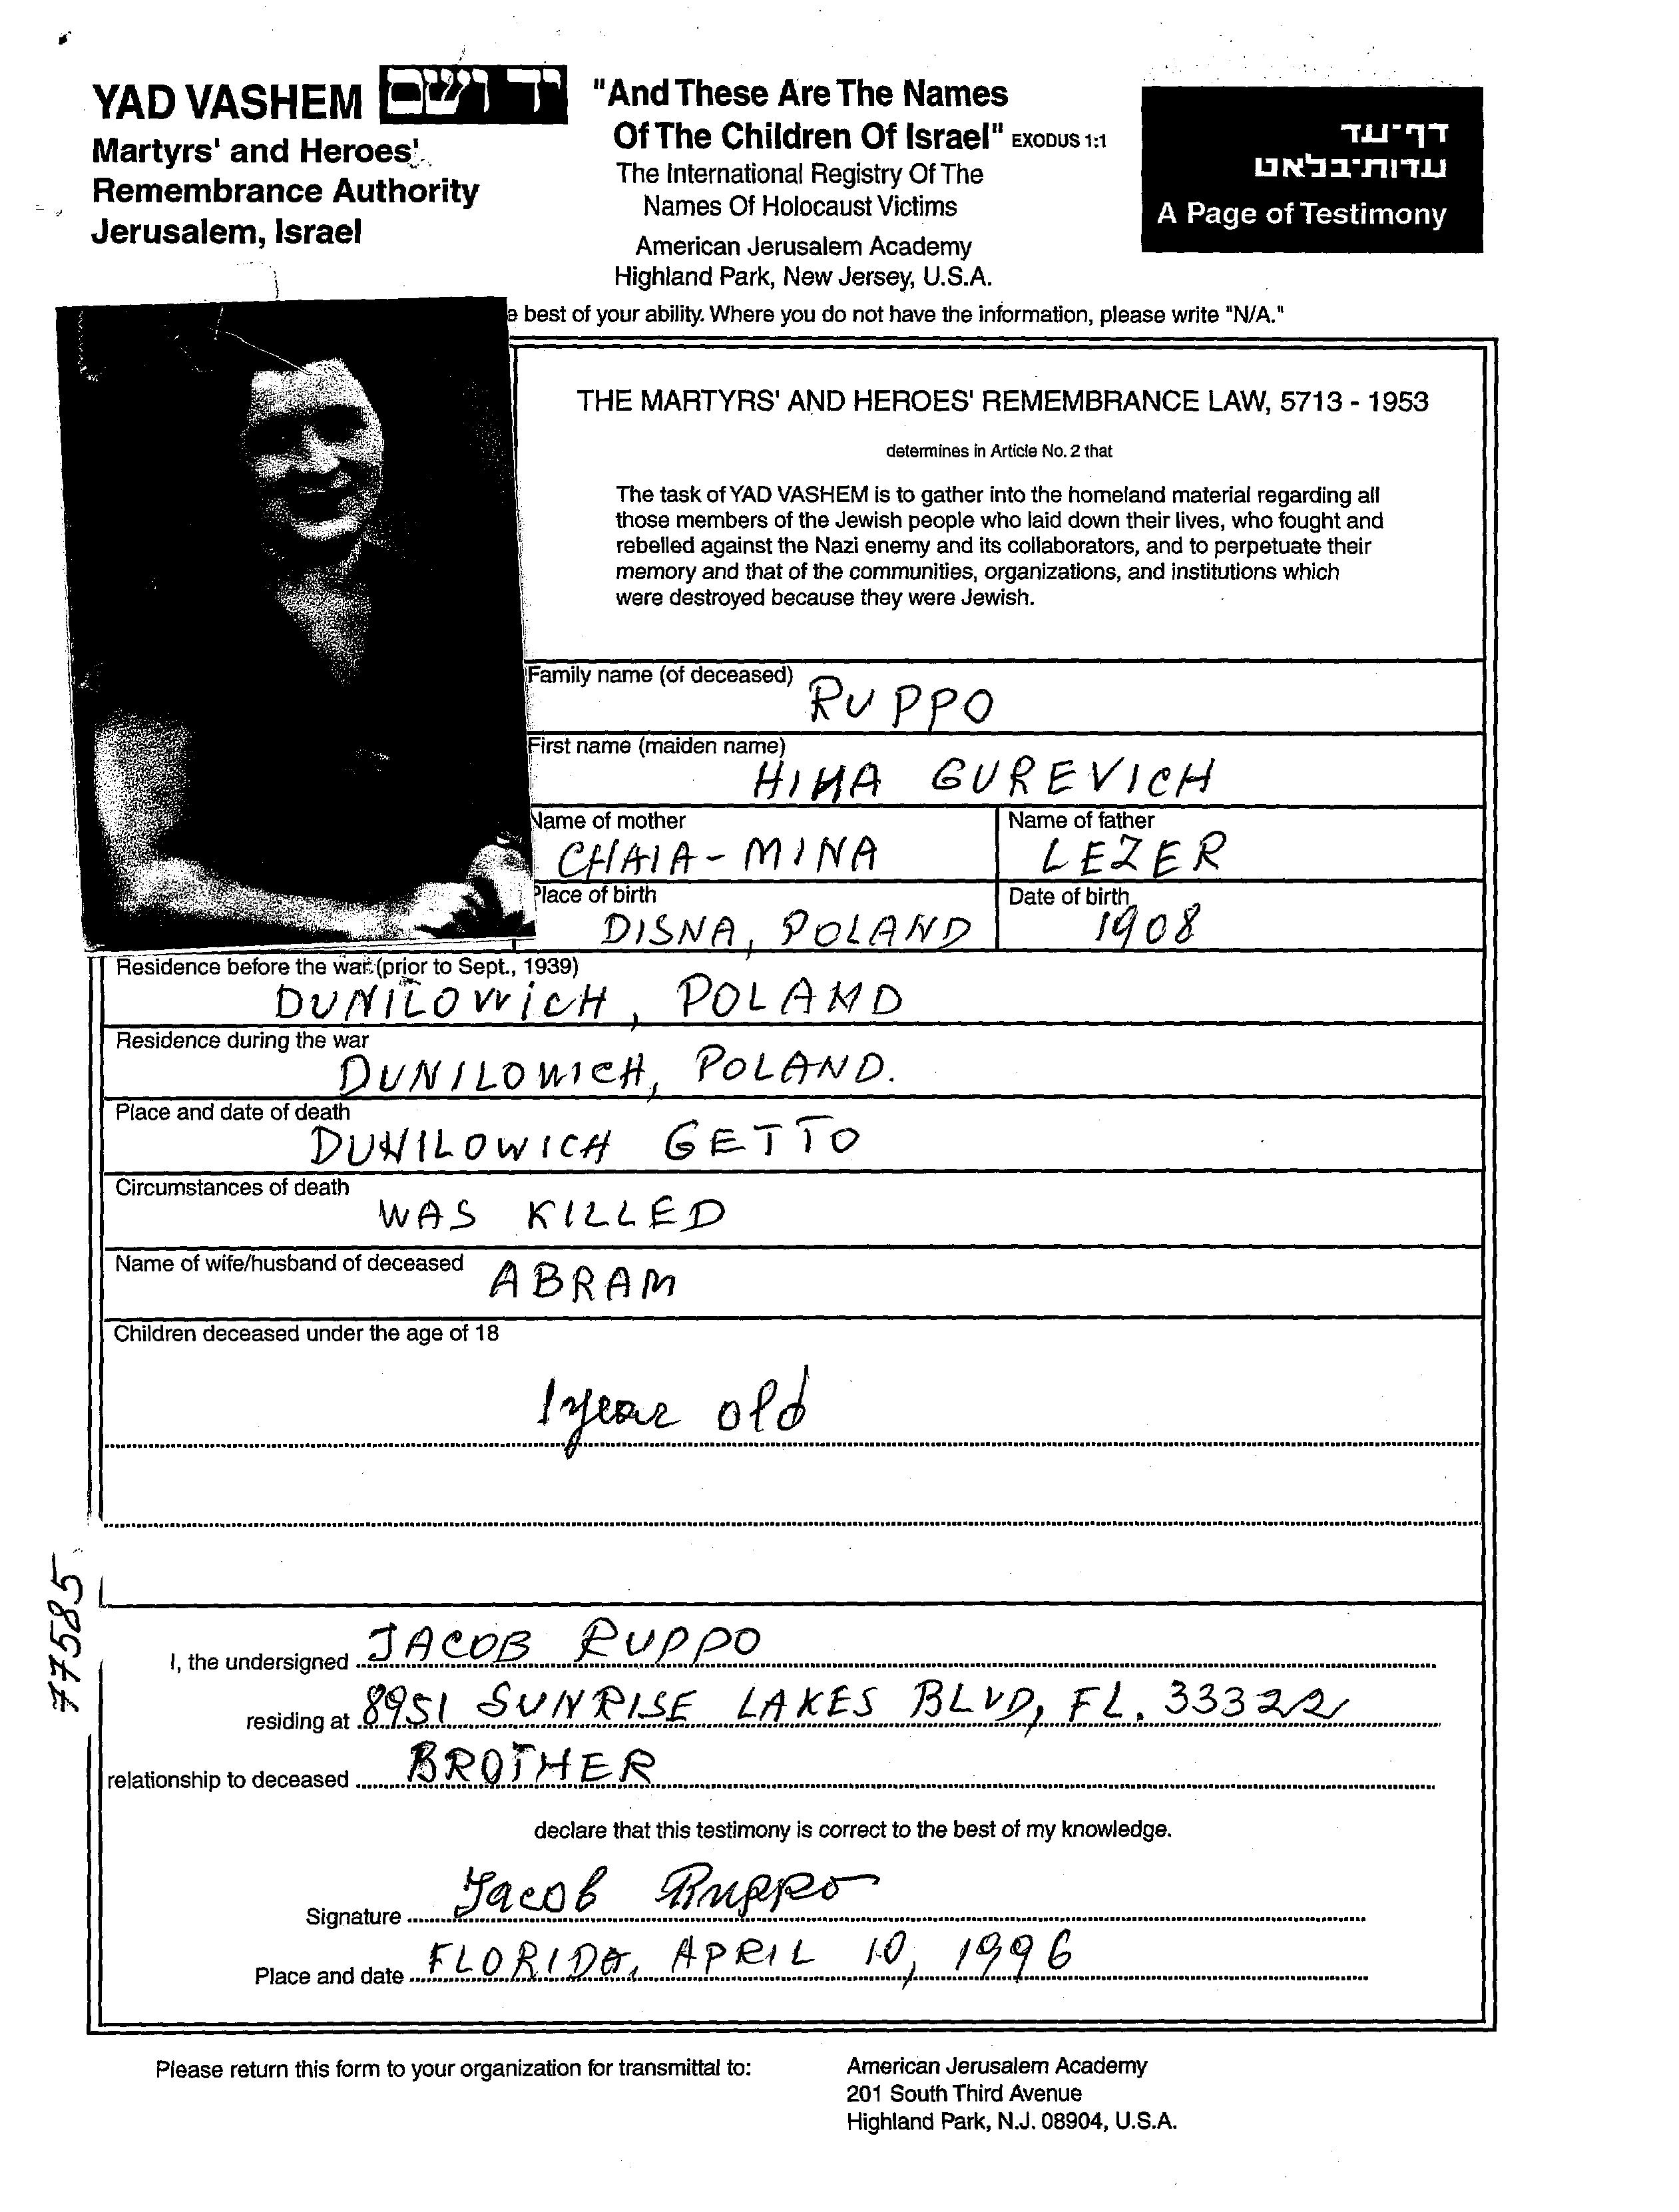 YAD VASHEM יד ושם
Martyrs' and Heroes'
Remembrance Authority
Jerusalem, Israel
"And These Are The Names
Of The Children Of Israel" EXODUS 1:1
The International Registry Of The
Names Of Holocaust Victims
American Jerusalem Academy
Highland Park, New Jersey, U.S.A.
דף-עד
עדות-בלאט
A Page of Testimony
best of your ability. Where you do not have the information, please write "N/A."
THE MARTYRS' AND HEROES' REMEMBRANCE LAW, 5713 - 1953
determines in Article No. 2 that
The task of YAD VASHEM is to gather into the homeland material regarding all
those members of the Jewish people who laid down their lives, who fought and
rebelled against the Nazi enemy and its collaborators, and to perpetuate their
memory and that of the communities, organizations, and institutions which
were destroyed because they were Jewish.
Family name (of deceased) RUPPO
First name (maiden name)
GUREVICH
Name of mother
CHAIA-MINA
Name of father
LEZER
Place of birth
DISNA, POLAND
Date of birth
1908
Residence before the war (prior to Sept., 1939)
DUNILOWICH, POLAND
Residence during the war
DUNILOWICH, POLAND.
Place and date of death
DUNILOWICH GETTO
Circumstances of death
WAS KILLED
Name of wife/husband of deceased ABRAM
Children deceased under the age of 18
1 year old
77585
I, the undersigned JACOB RUPPO
residing at 8951 SUNRISE LAKES BLVD, FL. 33322
relationship to deceased BROTHER
declare that this testimony is correct to the best of my knowledge.
Signature Jacob Ruppo
Place and date FLORIDA, APRIL 10, 1996
Please return this form to your organization for transmittal to:
American Jerusalem Academy
201 South Third Avenue
Highland Park, N.J. 08904, U.S.A.